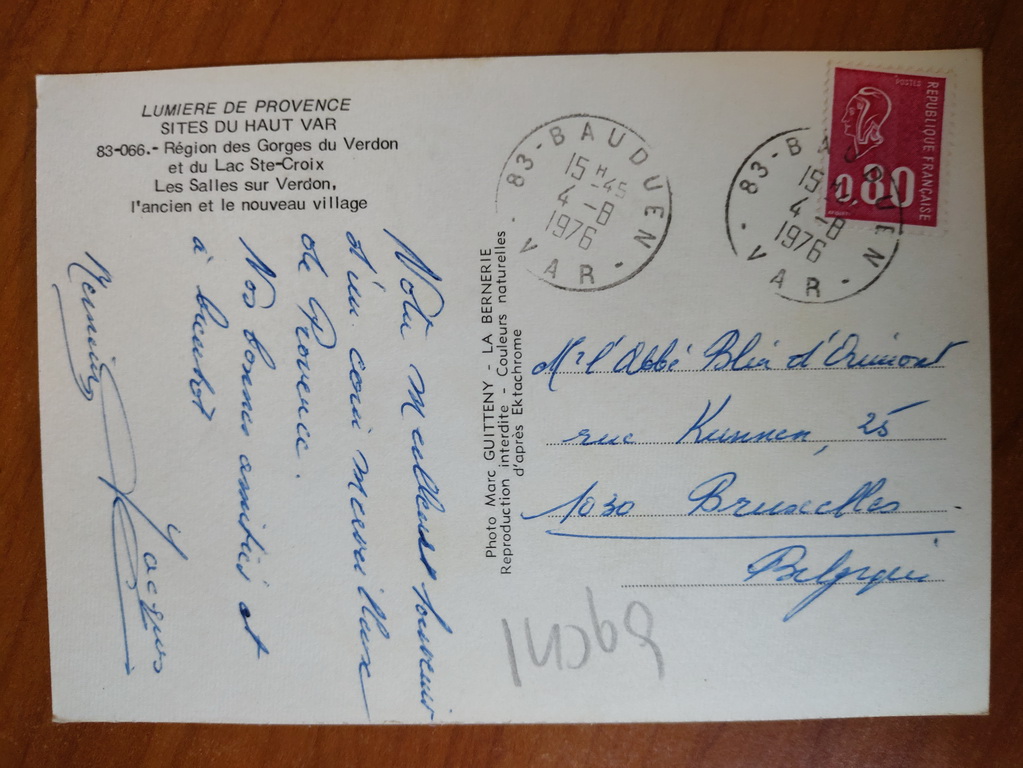 LUMIERE DE PROVENCE
SITES DU HAUT VAR
83-066.- Région des Gorges du Verdon
et du Lac Ste-Croix
Les Salles sur Verdon,
l'ancien et le nouveau village
Meilleurs souvenirs
d'un coin merveilleux
de Provence.
Nos bonnes amitiés et
à bientôt
Jacques
Photo Marc GUITTENY - LA BERNERIE
Reproduction interdite - Couleurs naturelles
d'après Ektachrome
83-BAUDUEN
15 H -45
4 -8
1976
VAR
83-BAUDUEN
15 H
4 -8
1976
VAR
POSTES
REPUBLIQUE FRANÇAISE
0,80
Mr l'Abbé d'Orimont
rue Kunnen, 25
1030 Bruxelles
Belgique